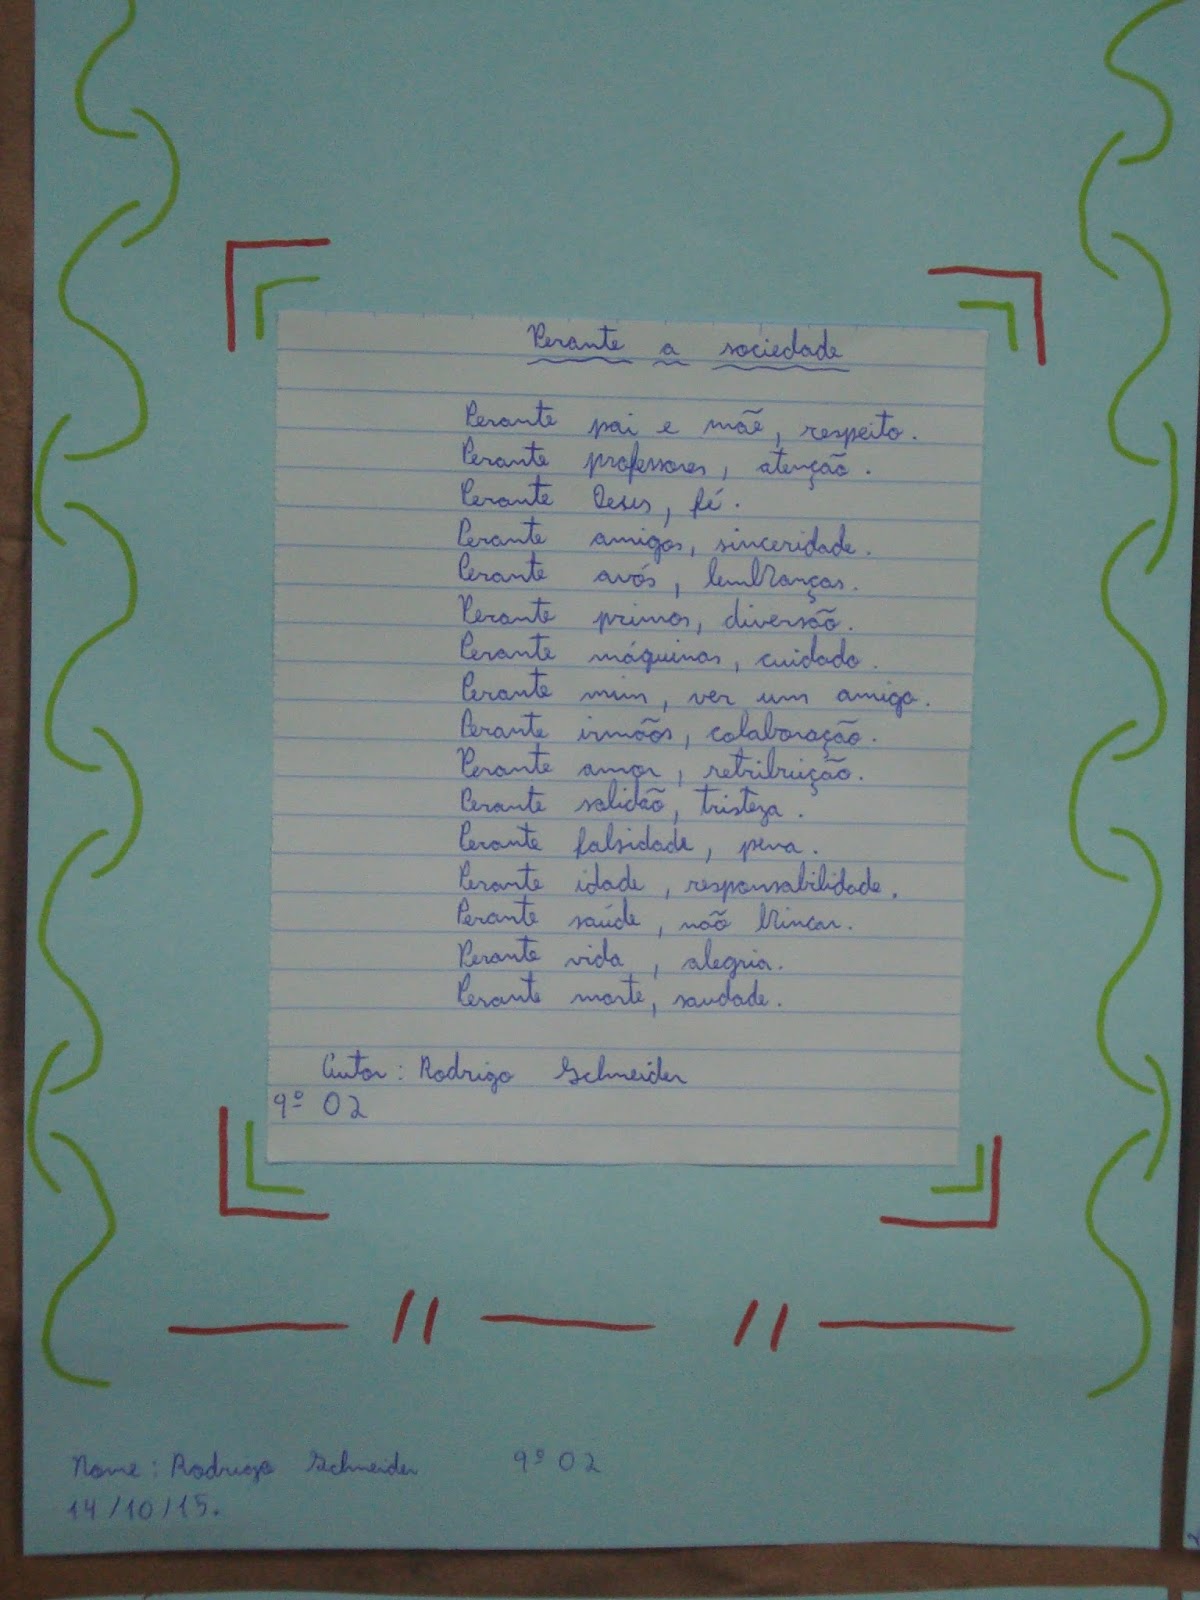 Perante a sociedade
Perante pai e mãe, respeito.
Perante professores, atenção.
Perante Deus, fé.
Perante amigos, sinceridade.
Perante avós, lembranças.
Perante primos, diversão.
Perante máquinas, cuidado.
Perante mim, ver um amigo.
Perante irmãos, colaboração.
Perante amor, retribuição.
Perante solidão, tristeza.
Perante falsidade, pena.
Perante idade, responsabilidade.
Perante saúde, não brincar.
Perante vida, alegria.
Perante morte, saudade.
Autor: Rodrigo Schneider
9º 02
Nome: Rodrigo Schneider 9º 02
14/10/15.